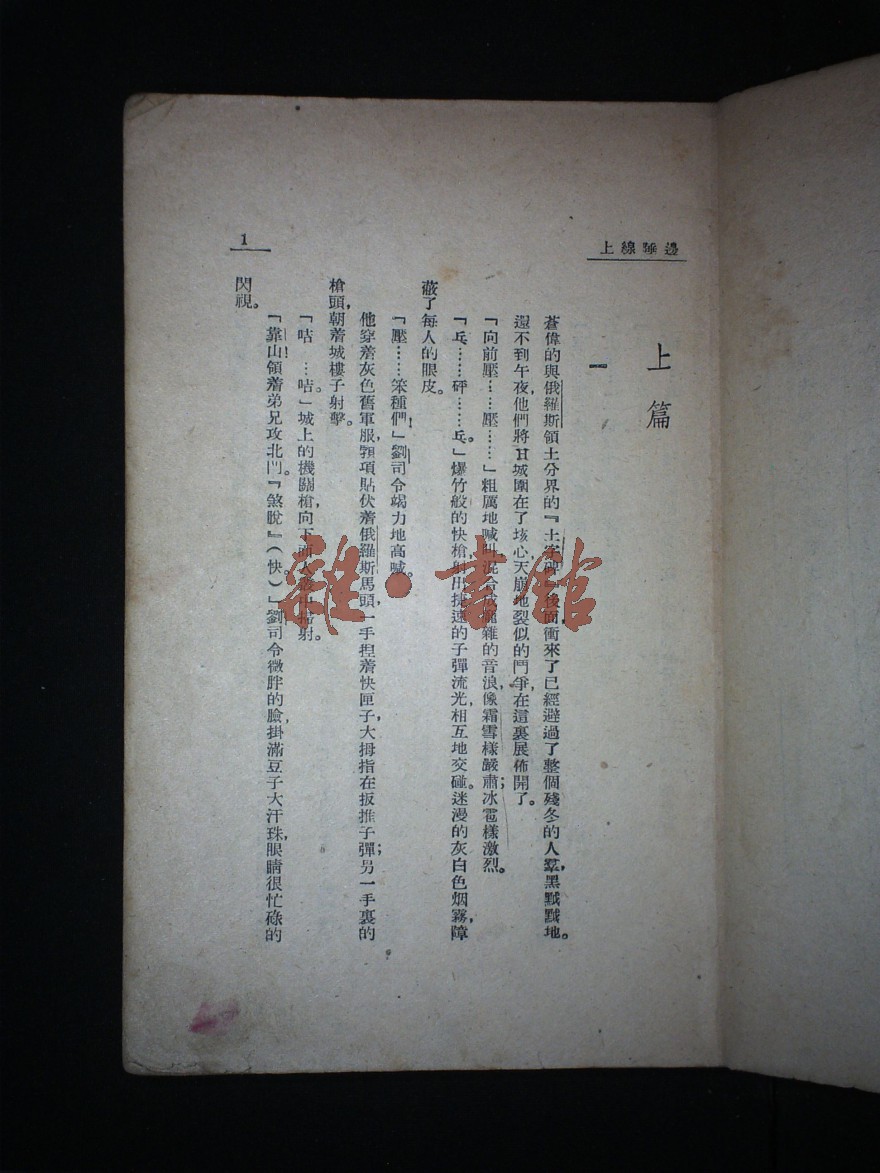 邊陲線上
1
上篇
一
蒼偉的與俄羅斯領土分界的『土字碑』後面，衝來了已經避過了整個殘冬的人羣，黑黬黬地。
還不到午夜，他們將H城圍在了垓心，天崩地裂似的鬥爭在這裏展佈開了。
「向前壓……壓……」粗厲地喊叫，混合成龐雜的音浪，像霜雪樣嚴肅；冰雹樣激烈。
「乓……砰……乓。」爆竹般的快槍，射出捷速的子彈流光，相互地交碰。迷漫的灰白色烟霧，障
蔽了每人的眼皮。
「壓……笨種們！」劉司令竭力地高喊。
他穿着灰色舊軍服，頸項貼伏着俄羅斯馬頭，一手揑着快匣子，大拇指在扳推子彈；另一手裏的
槍頭，朝着城樓子射擊。
「咕…咭。」城上的機關槍向下面人叢中掃射。
「靠山！領着弟兄攻北門。『煞脫』（快）」劉司令微胖的臉，掛滿豆子大汗珠，眼睛很忙碌的
閃視。
雜·書館